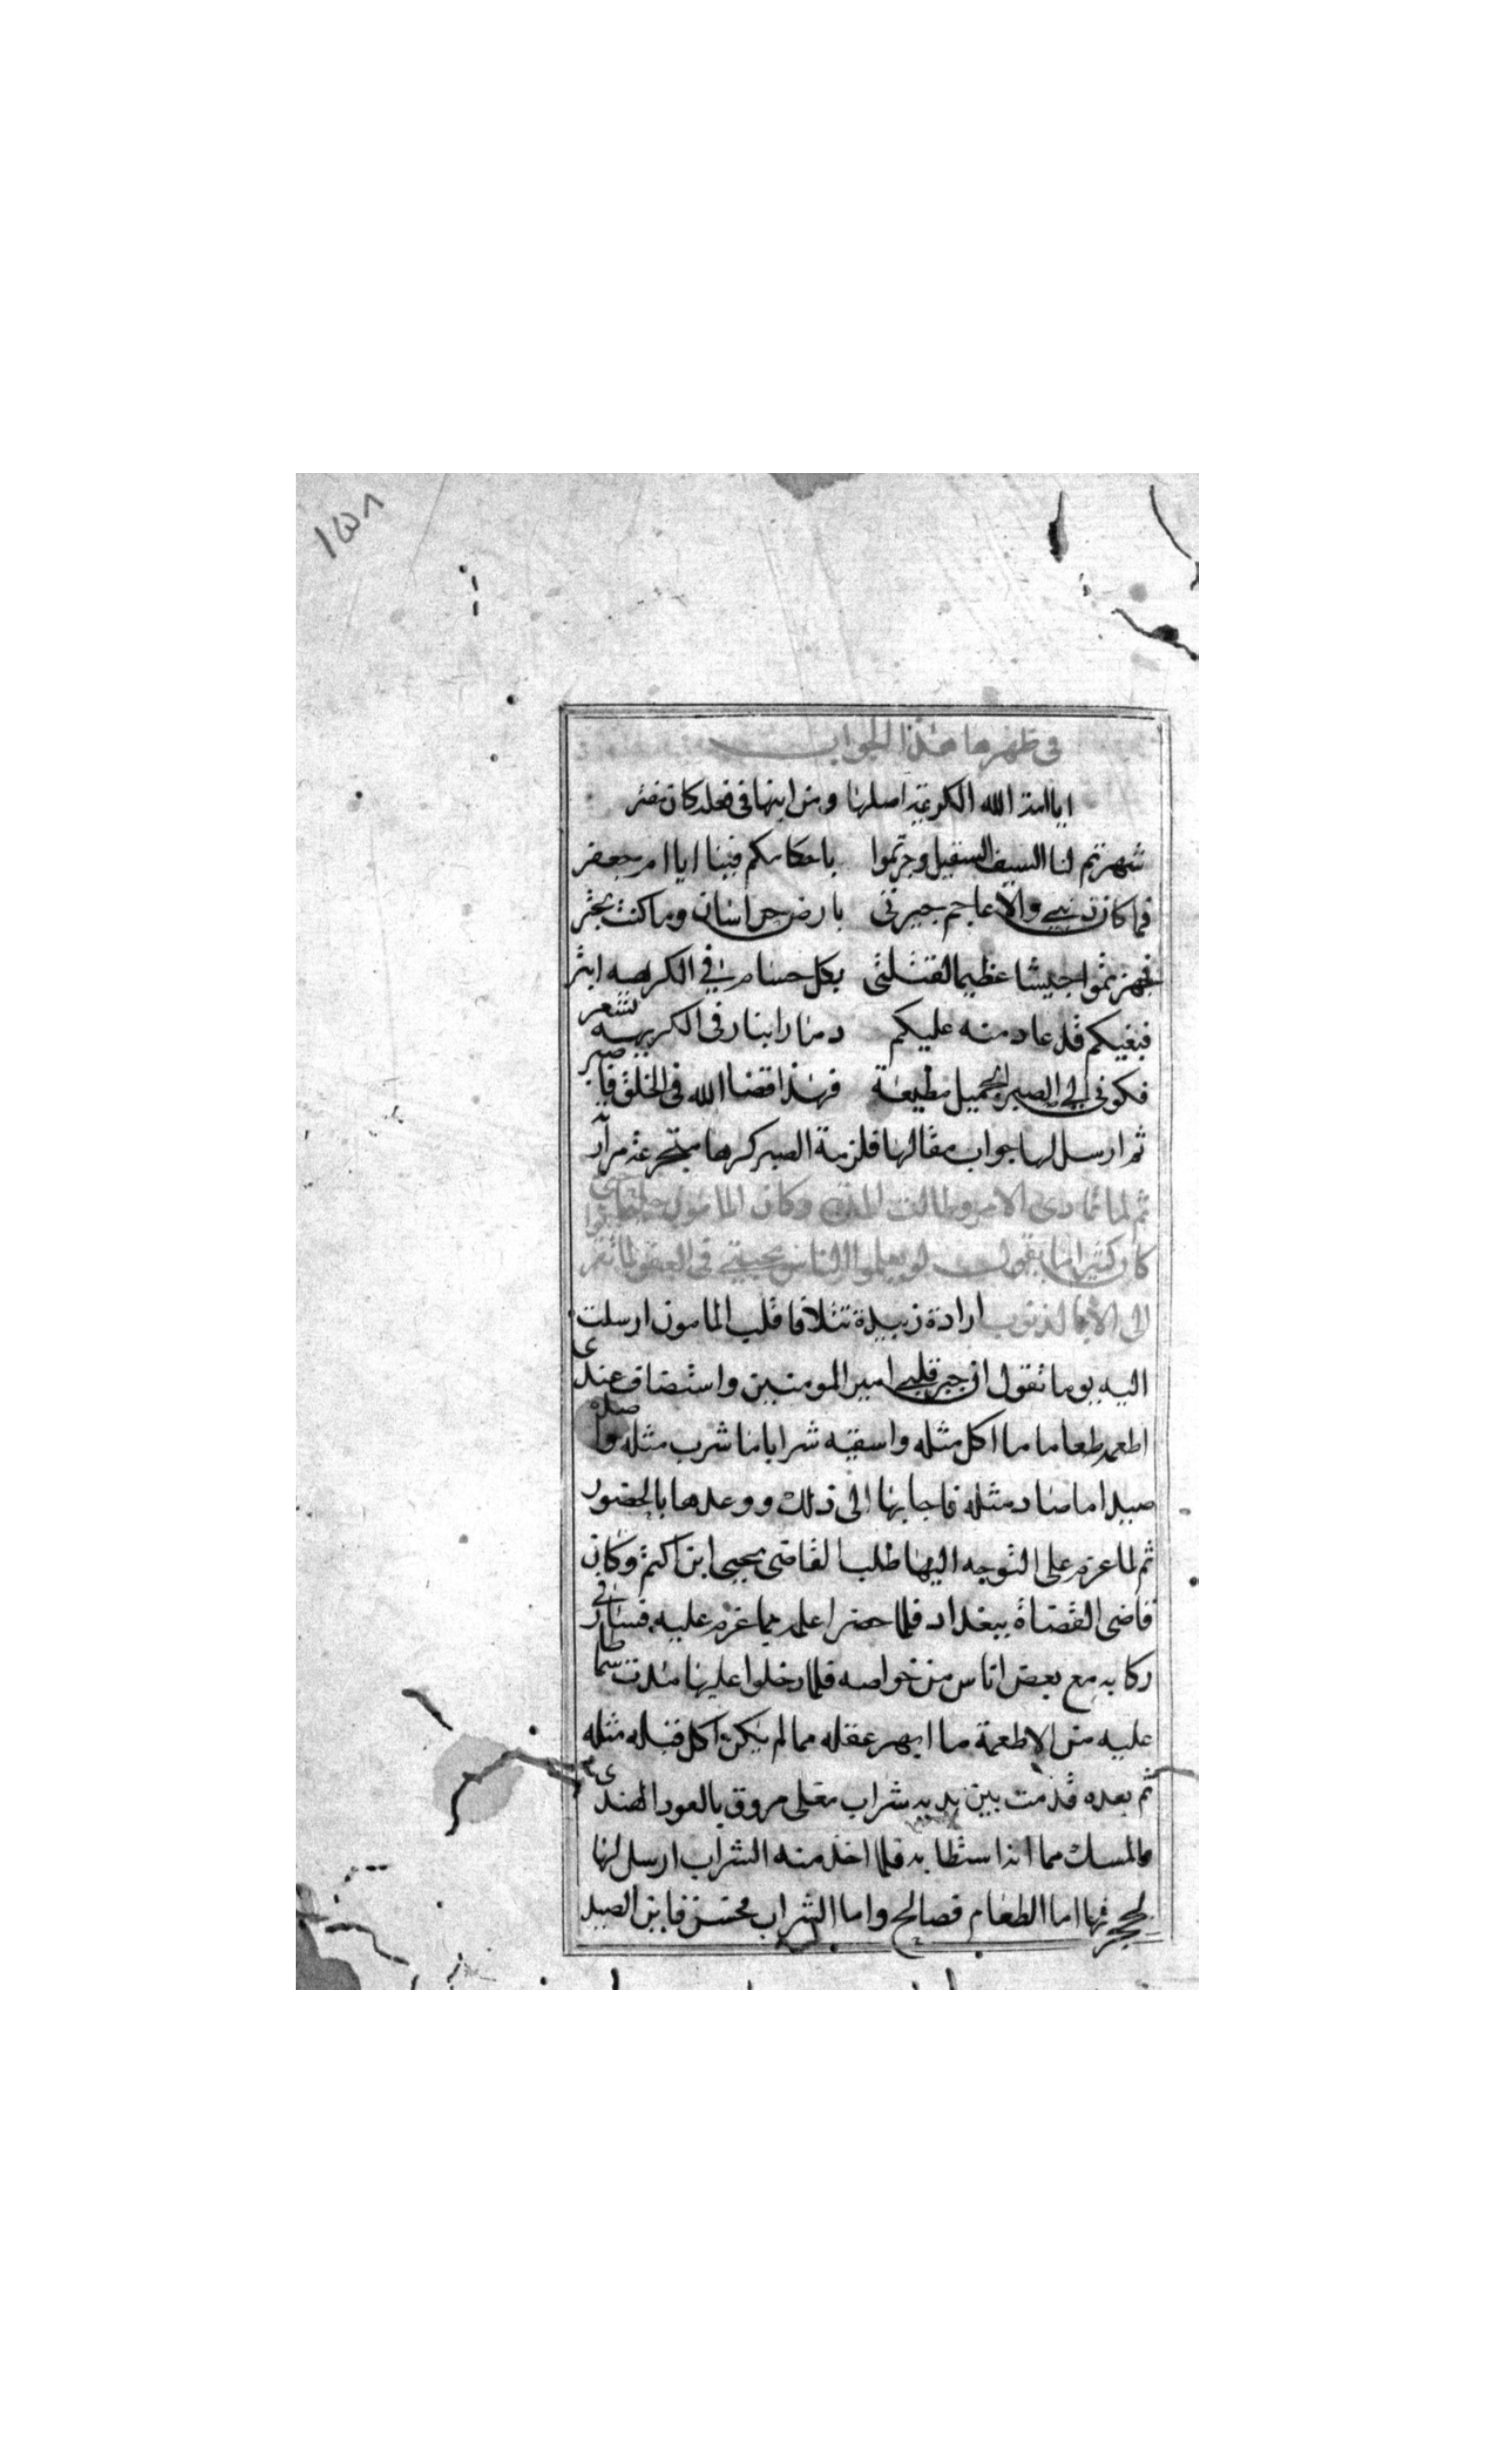 ١٥٨
في ظهرها هذا الجواب
ايا ابنة الله الكريمة اصلها ومن ابنها في فعله كان
شهرتم لنا السيف الصقيل وجرتموا باحكامكم فينا ايا ام جعفر
فما كان ذنبي والاعاجم جيرتي بارض خراسان وما كنت
فجهزتموا جيشا عظيما لقتلتي بكل حسام في الكريهه ابتر
فبغيكم قد عاد منه عليكم دمنا رابنا رفى الكريهه تشعر
فكوني الى الصبر الجميل مطيعة فهذا قضا الله في الخلق فاصبر
ثم ارسل لها جواب مقالها فلزمة الصبر كرها متجرعة مرارة
ثم لما تمادى الامر وطالت المدة وكان المامون حليما حتى
كان كثيرا ما يقول لو يعلموا الناس محبتي في العفو لما تقربوا
الى الا بالذنوب ارادة زبيدة تتلافا قلب المامون ارسلت
اليه يوما تقول ان جبر قلبي امير المومنين واستضاف عندى
اطعمه طعاما ما اكل مثله واسقيه شرابا ما شرب مثله واصله
صيدا ما صاد مثله فاجابها الى ذلك ووعدها بالحضور
ثم لما عزم على التوجه اليها طلب القاضى يحيى ابن اكثم وكان
قاضى القضاة ببغداد فلما حضر اعلمه بما عزم عليه فسار في
ركابه مع بعض اناس من خواصه فلما دخلوا عليها مدت سماطا
عليه من الاطعمة ما ابهر عقله مما لم يكن اكل قبله مثله
ثم بعده قدمت بين يديه شراب مغلى مروق بالعود الهندى
والمسك مما اذا ستطابه فلما اخذ منه الشراب ارسل لها
اما الطعام فصالح واما الشراب فاين الصيد